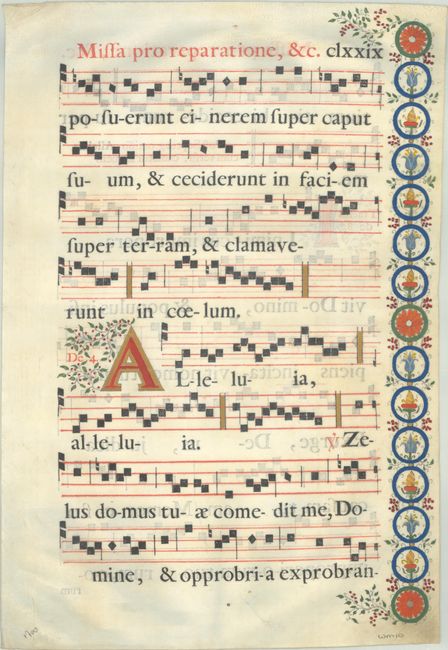 Miſſa pro reparatione, &c. clxxix
po-ſu-erunt ci-nerem ſuper caput
ſu- um, & ceciderunt in faci-em
ſuper ter-ram, & clamave-
runt in cœ-lum.
De 4.
A L-le- lu- ia,
al-le-lu- ia. ℣. Ze-
lus do-mus tu- æ come- dit me, Do-
mine, & opprobri-a exprobran-